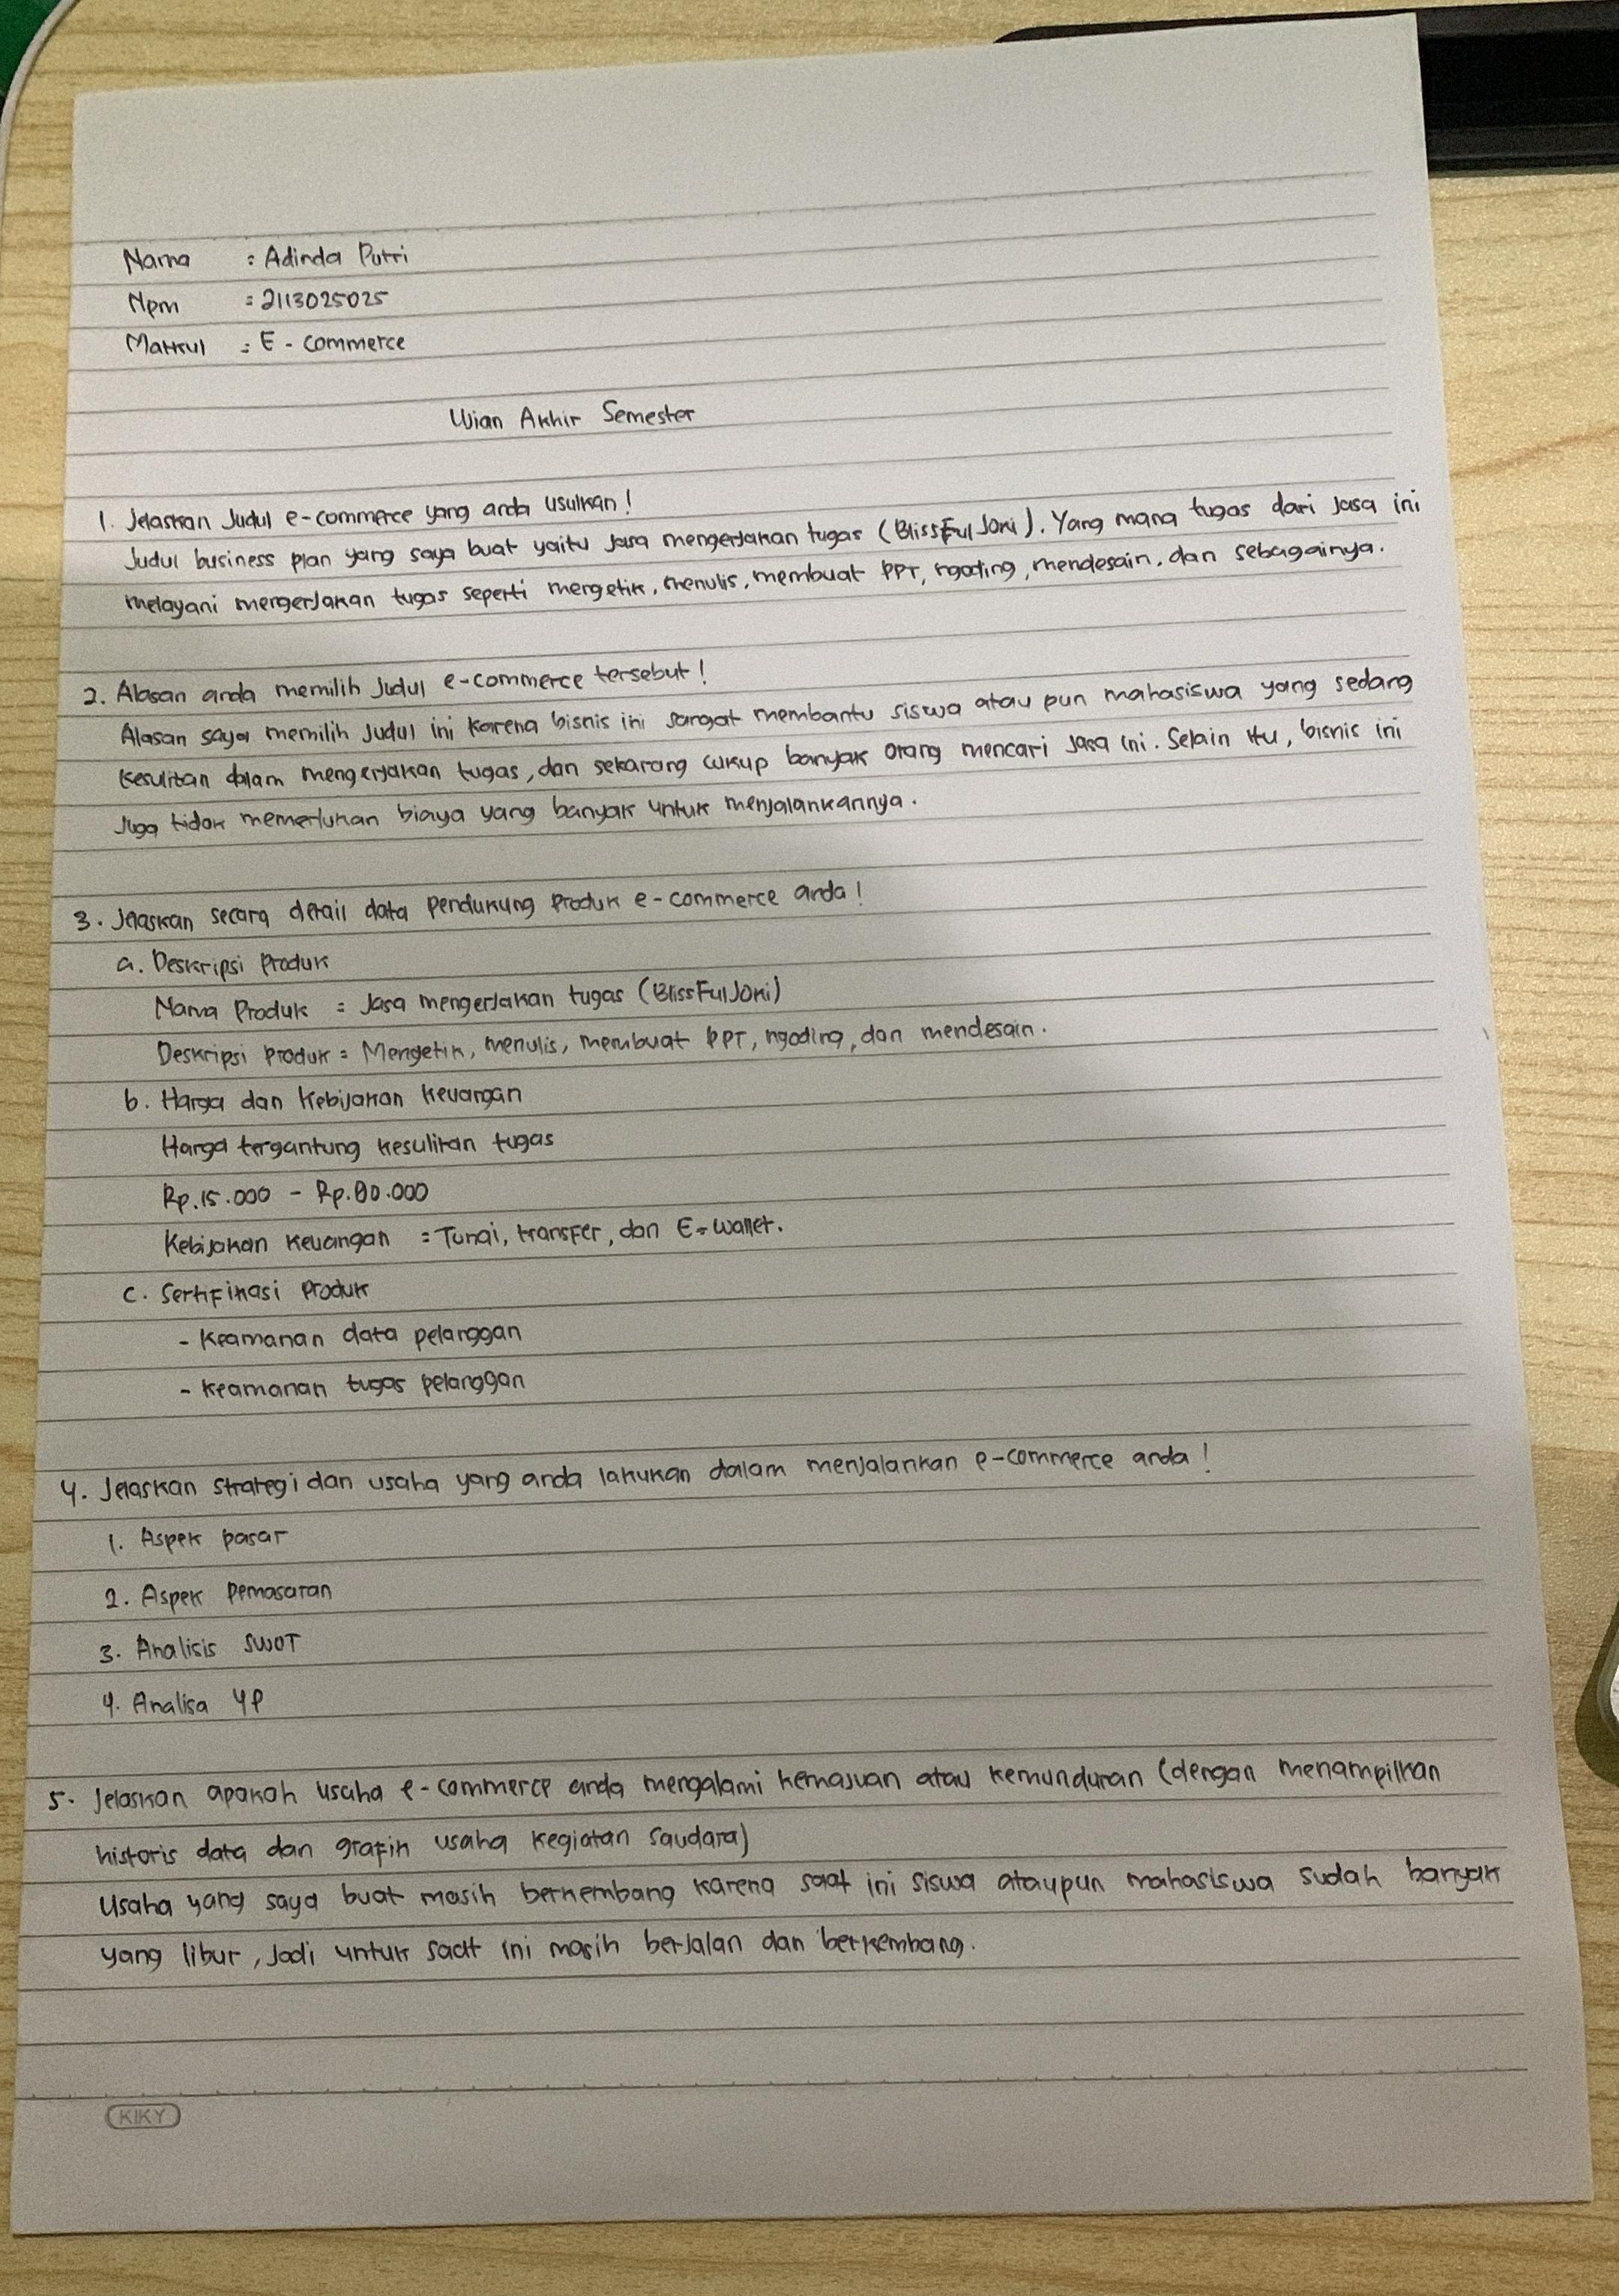 Nama : Adinda Putri
Npm : 2113025025
Matkul : E - commerce
Ujian Akhir Semester
1. Jelaskan Judul e-commerce yang anda usulkan!
Judul business plan yang saya buat yaitu jasa mengerjakan tugas (BlissFul Joki). Yang mana tugas dari jasa ini
melayani mengerjakan tugas seperti mengetik, menulis, membuat PPT, ngoding, mendesain, dan sebagainya.
2. Alasan anda memilih Judul e-commerce tersebut!
Alasan saya memilih Judul ini karena bisnis ini sangat membantu siswa atau pun mahasiswa yang sedang
kesulitan dalam mengerjakan tugas, dan sekarang cukup banyak orang mencari jasa ini. Selain itu, bisnis ini
Juga tidak memerlukan biaya yang banyak untuk menjalankannya.
3. Jelaskan secara detail data pendukung Produk e-commerce anda!
a. Deskripsi Produk
Nama Produk = Jasa mengerjakan tugas (BlissFulJoki)
Deskripsi produk = Mengetik, menulis, membuat PPT, ngoding, dan mendesain.
b. Harga dan Kebijakan Keuangan
Harga tergantung kesulitan tugas
Rp.15.000 - Rp.80.000
Kebijakan Keuangan : Tunai, transfer, dan E-Wallet.
c. Sertifikasi Produk
- Keamanan data pelanggan
- keamanan tugas pelanggan
4. Jelaskan strategi dan usaha yang anda lakukan dalam menjalankan e-commerce anda!
1. Aspek pasar
2. Aspek Pemasaran
3. Analisis SWOT
4. Analisa 4P
5. Jelaskan apakah usaha e-commerce anda mengalami kemajuan atau kemunduran (dengan menampilkan
historis data dan grafik usaha kegiatan saudara)
Usaha yang saya buat masih berkembang karena saat ini siswa ataupun mahasiswa sudah banyak
yang libur, Jadi untuk saat ini masih berjalan dan berkembang.
KIKY